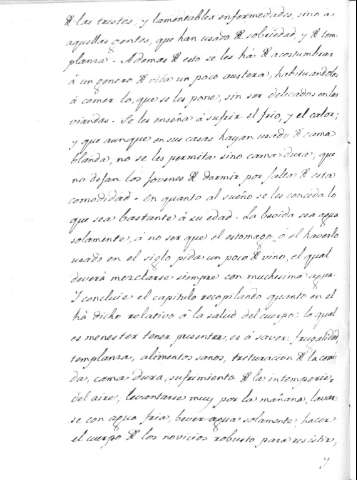 de las tristes, y lamentables enfermedades, sino a
aquellas gentes, que han usado de sobriedad, y de tem-
planza - Ademas de esto se les há de acostumbrar
á un genero de vida un poco austera, habituandoles
á comer lo que se les pone, sin ser delicados en las
viandas. Se les enseña á sufrir el frio, y el calor;
y que aunque en sus casas hayan usado de cama
blanda, no se les permita sino cama dura, que
no dejan los Jovenes de dormir por falta de esta
comodidad. En quanto al sueño se les conceda lo
que sea bastante á su edad. La bevida sea agua
solamente, á no ser que el estomago, ó el haverlo
usado en el siglo pida un poco de vino, el qual
deverá mezclarse siempre con muchisima agua.
Y concluie el capitulo recopilando quanto en el
há dicho relativo á la salud del cuerpo: lo qual
es menester tener presente; es á saver, frugalidad,
templanza, alimentos sanos, trituración de la comi-
da, cama dura, sufrimiento de las intemperies
del aire, levantarse muy por la mañana, lavar-
se con agua fria, bever agua solamente, hacer
el cuerpo de los novicios robusto para resistir,
y